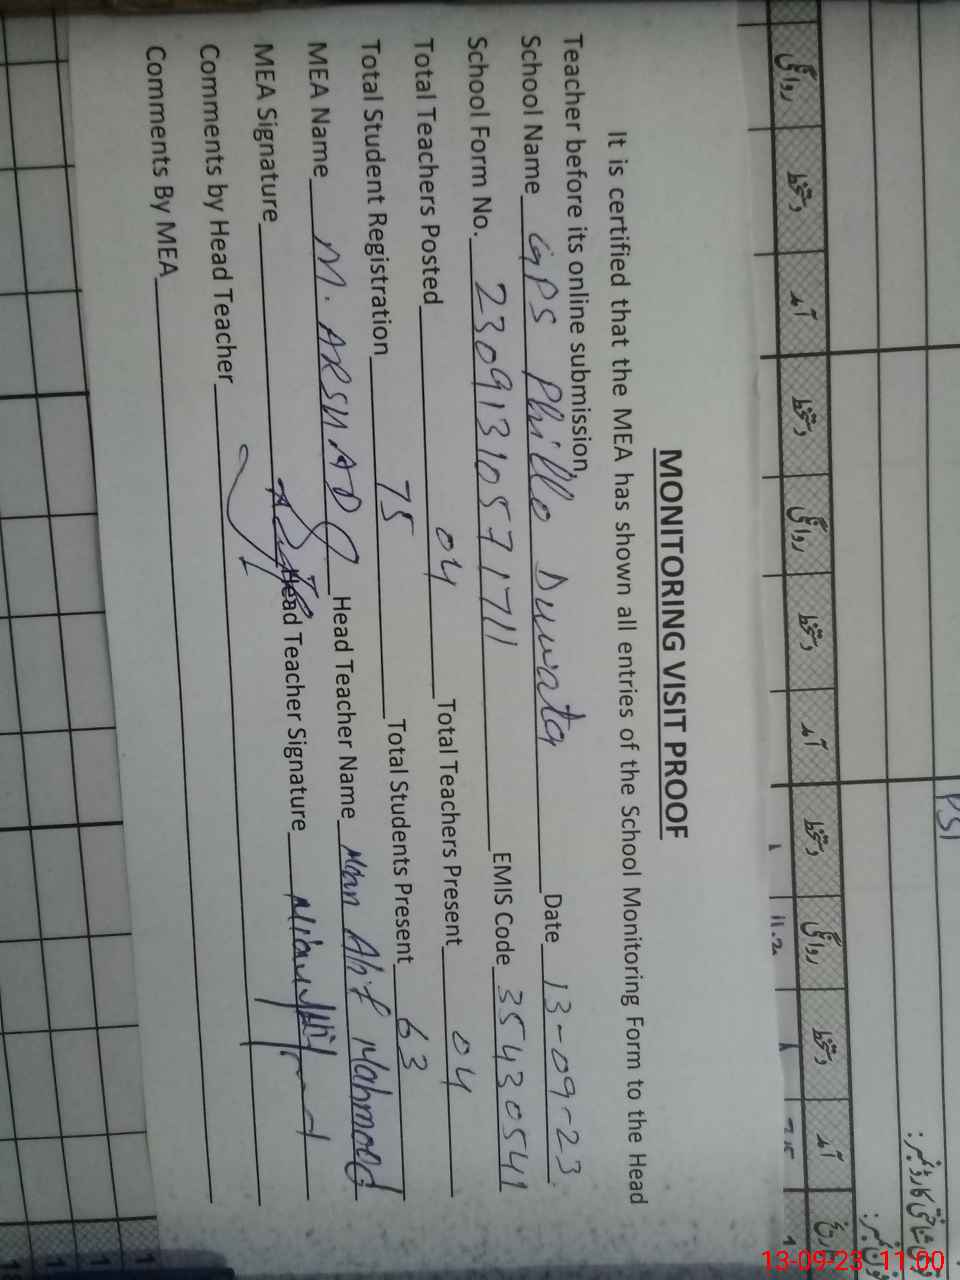 MONITORING VISIT PROOF
It is certified that the MEA has shown all entries of the School Monitoring Form to the Head
Teacher before its online submission,
School Name GPS Phillo Duwata Date 13-09-23
School Form No. 23091310571711 EMIS Code 35430541
Total Teachers Posted 04 Total Teachers Present 04
Total Student Registration 75 Total Students Present 63
MEA Name M. ARSHAD Head Teacher Name Mian Mahmood
MEA Signature Head Teacher Signature
Comments by Head Teacher
Comments By MEA
روانگی دستخط آمد دستخط روانگی دستخط آمد دستخط روانگی دستخط آمد تاریخ
PSI
13-09-23 11:00